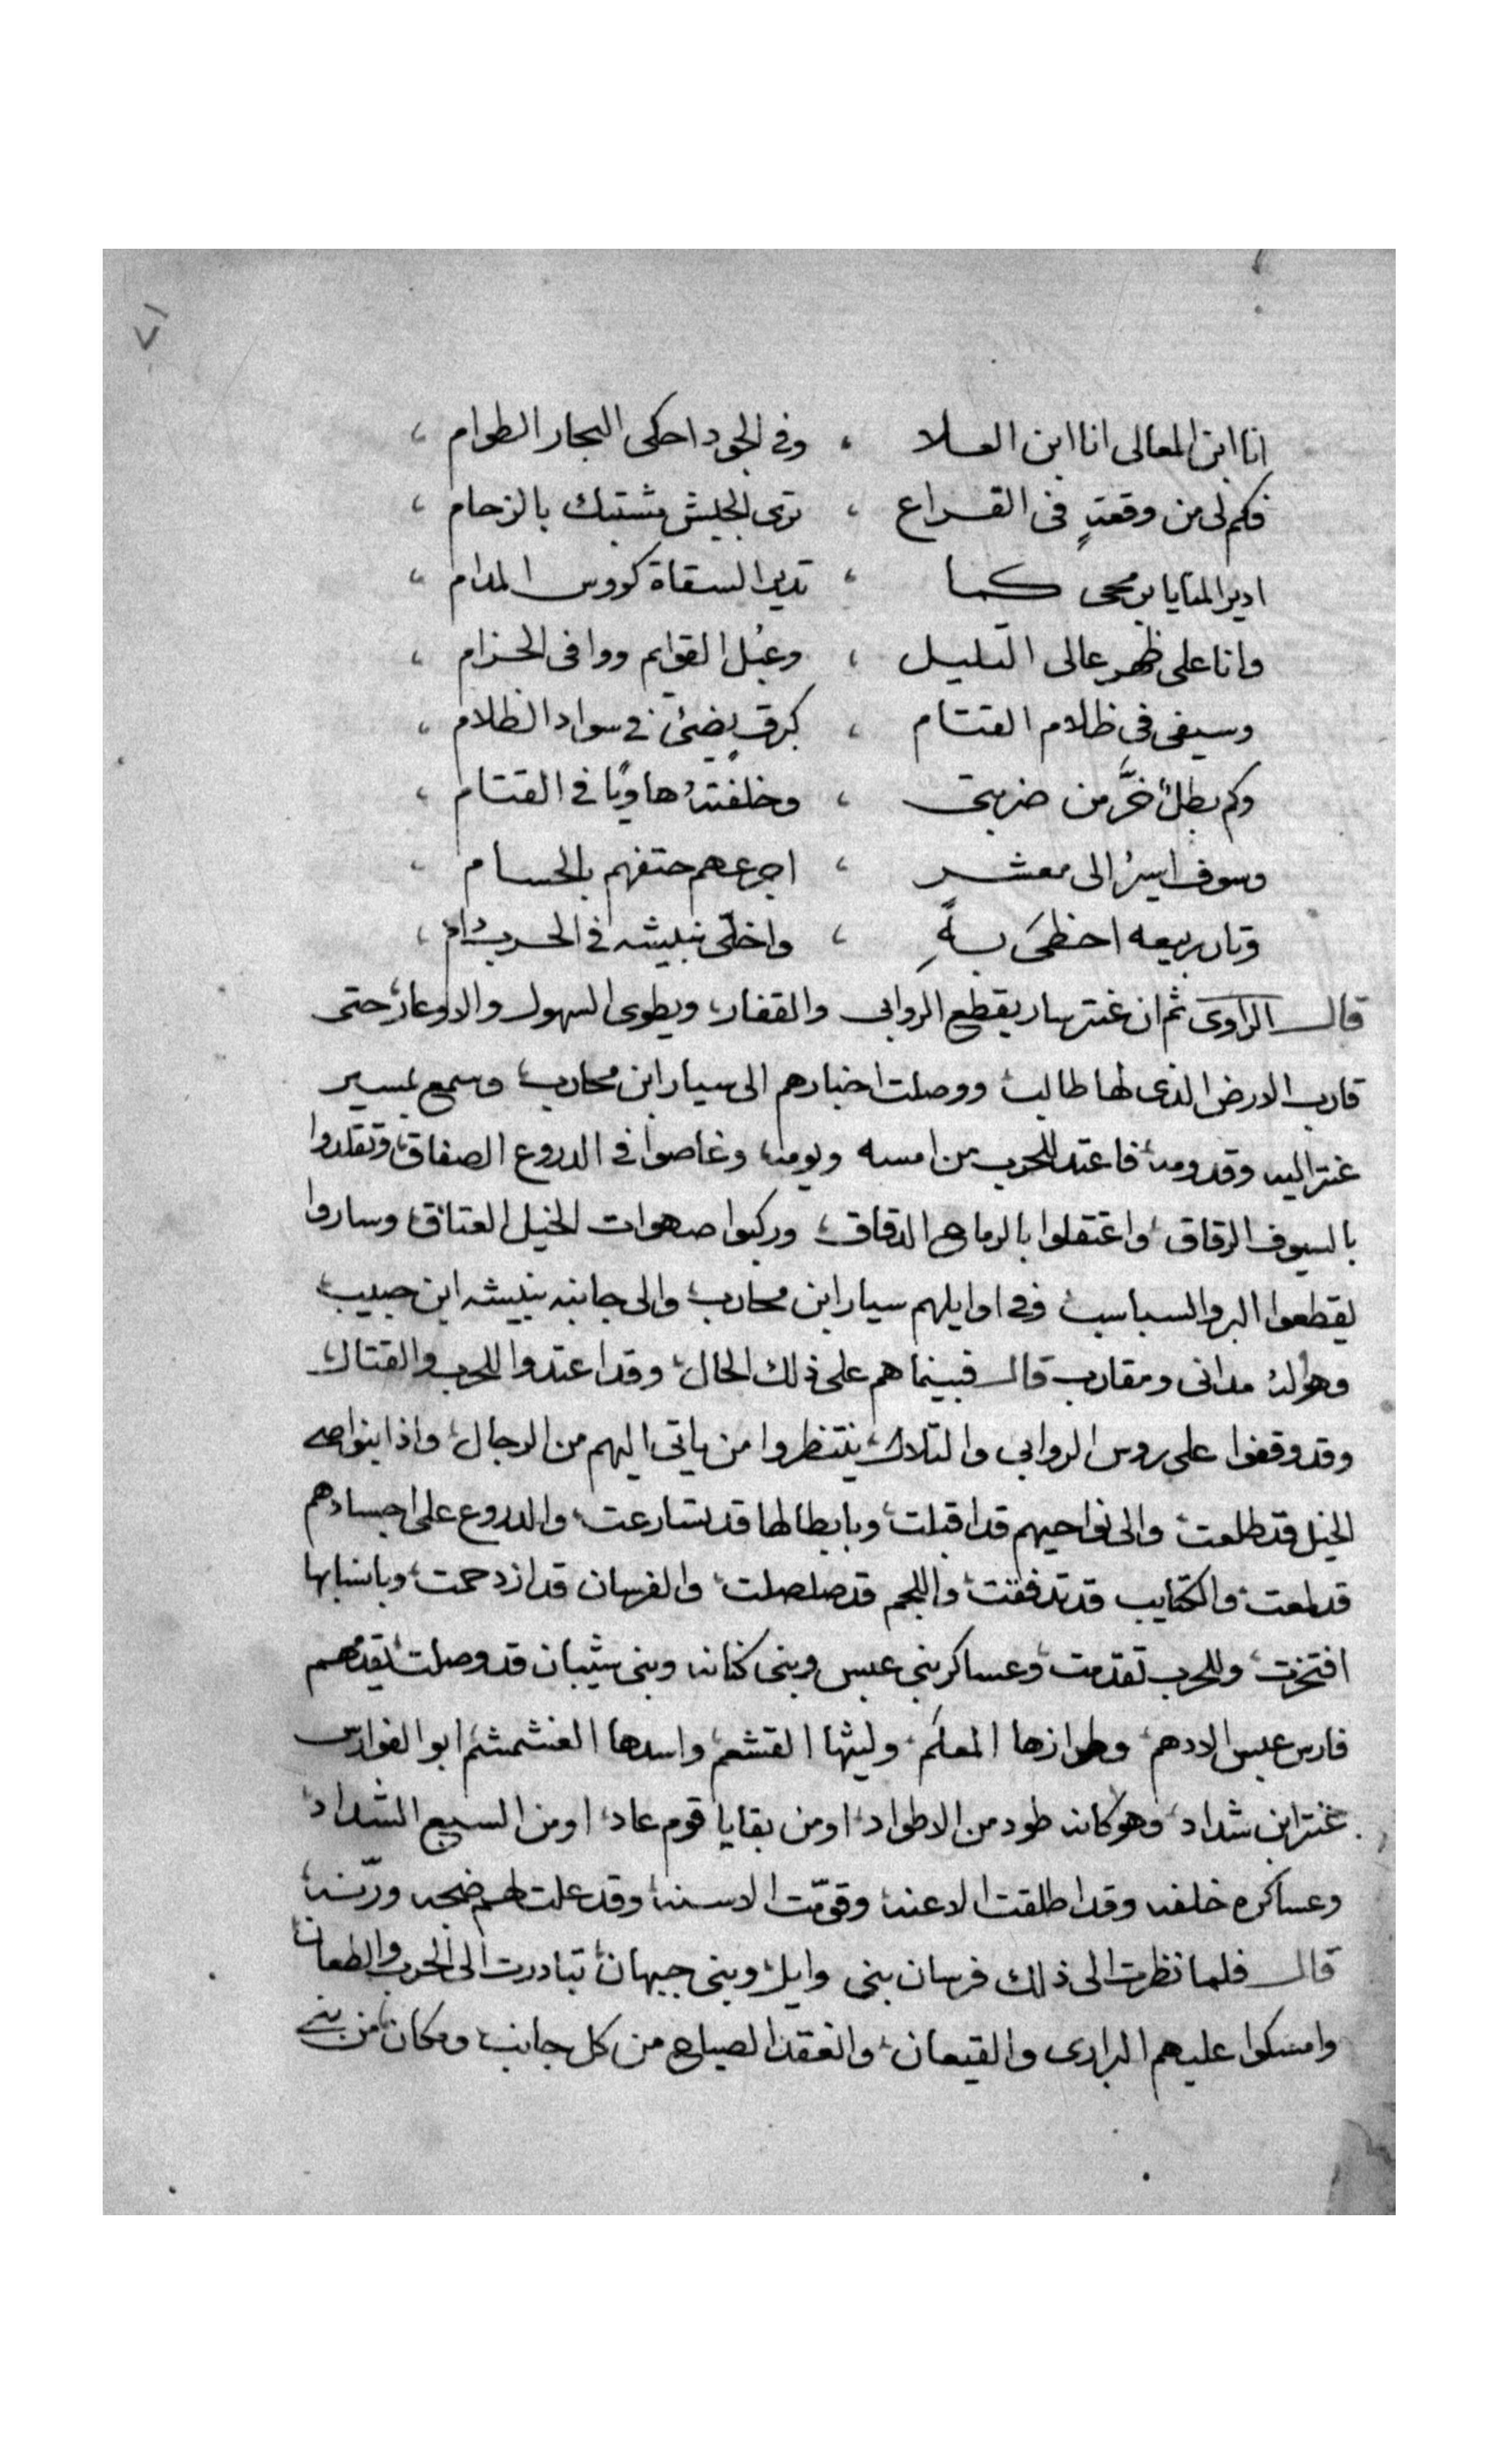 ٧٦
انا ابن المعالى انا ابن العلا ، وفى الجود احكى البحار الطوام ،
فكم لى من وقعةٍ فى القراع ، ترى الجيش مشتبك بالزحام ،
ادير المنايا برمحى كما ، تدير السقاة كووس المدام ،
وانا على ظهر عالى التليل ، وعبل القوايم ووافى الحزام ،
وسيفى فى ظلام القتام ، كبرقٍ يضئ فى سواد الظلام ،
وكم بطلٍ خرَّ من ضربتى ، وخلفتهُ هاويًا فى القتام ،
وسوف اسيرُ الى معشر ، اجرعهم حتفهم بالحسام ،
وتار ربيعه احظى بهِ ، واخلّى نبيشه فى الحرب
قال الراوى ثم ان عنتر سار يقطع الروابى والقفار، ويطوى السهول والاوعار، حتى
قارب الارض الذى لها طالب، ووصلت اخبارهم الى سيار ابن محارب، وسمع بمسير
عنتر اليه وقدومه، فاعتد للحرب من امسه ويومه، وغاصوا فى الدروع الصفاق، وتقلدوا
بالسيوف الرقاق، واعتقلوا بالرماح الدقاق، وركبوا صهوات الخيل العتاق، وساروا
يقطعوا البر والسباسب، وفى اوايلهم سيار ابن محارب، والى جانبه نبيشه ابن حبيب،
وهو له مدانى ومقارب قال فبينما هم على ذلك الحال، وقد اعتدوا للحرب والقتال،
وقد وقفوا على روس الروابى والتلال، ينتظروا من ياتى اليهم من الرجال، واذا بنواصى
الخيل قد طلعت، والى نواحيهم قد اقبلت، وبابطالها قد تسارعت، والدروع على اجسادهم
قد لمعت، والكتايب قد تدفقت، واللجم قد صلصلت، والفرسان قد ازدحمت، وبانسابها
افتخرت، وللحرب تقدمت، وعساكر بنى عبس وبنى كنانه وبنى شيبان قد وصلت، يقدمهم
فارس عبس الادهم، وطرازها المعلم، وليثها القشعم، واسدها الغشمشم، ابو الفوارس
عنتر ابن شداد، وهو كانه طود من الاطواد، او من بقايا قوم عاد، او من السبع الشداد،
وعساكره خلفه وقد اطلقت الاعنه، وقوّمت الاسنه، وقد علت لهم ضجه ورنّه،
قال فلما نظرت الى ذلك فرسان بنى وايل، وبنى جبهان، تبادرت الى الحرب والطعان،
وامسكوا عليهم البرارى والقيعان، وانعقد الصياح من كل جانب ومكان، من بنى